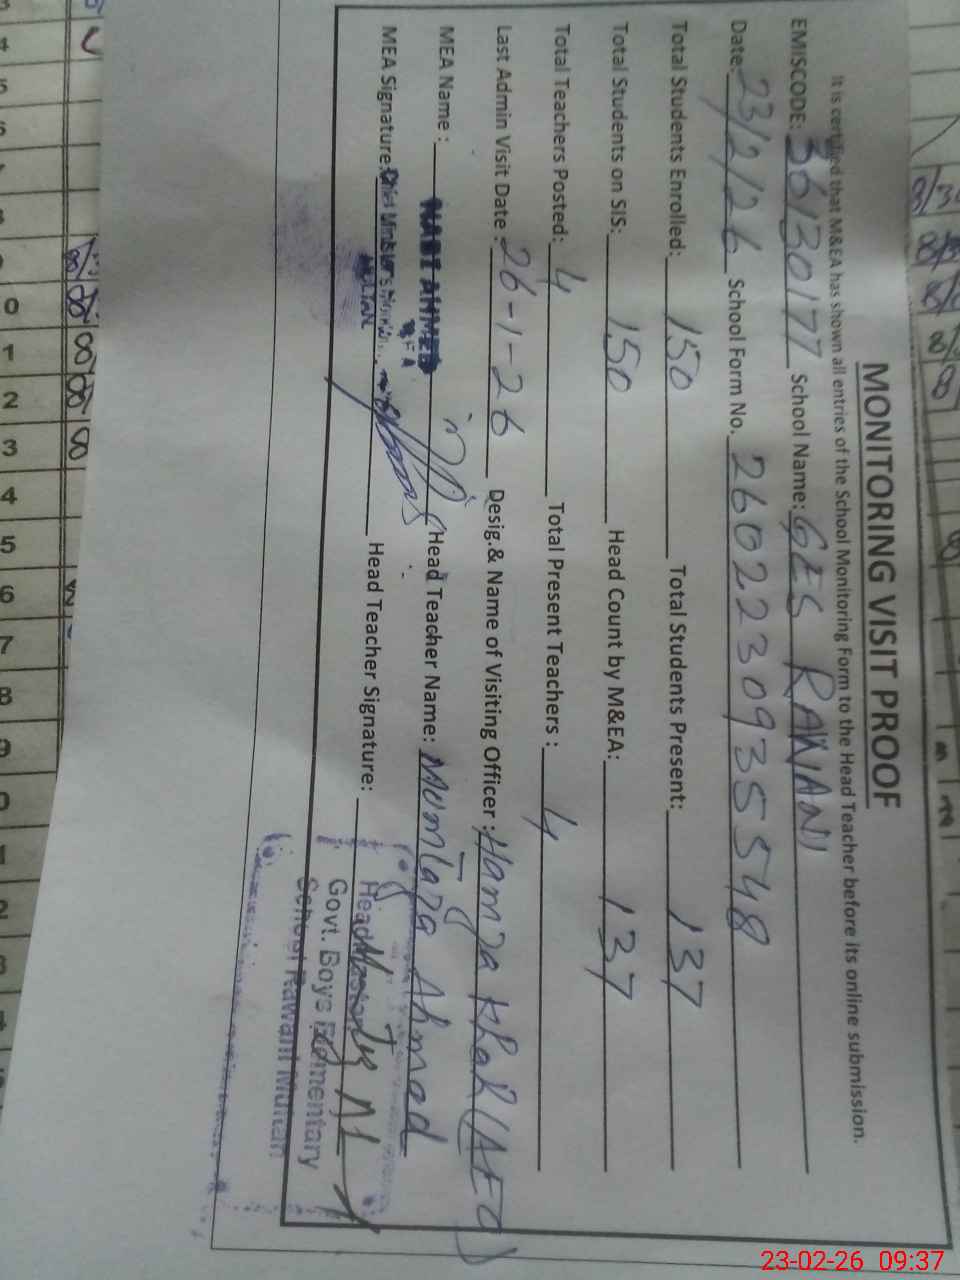 MONITORING VISIT PROOF
It is certified that M&EA has shown all entries of the School Monitoring Form to the Head Teacher before its online submission.
EMISCODE: 36130177 School Name: GES RAWANI
Date: 23/2/26 School Form No. 2602230935548
Total Students Enrolled: 150 Total Students Present: 137
Total Students on SIS: 150 Head Count by M&EA: 137
Total Teachers Posted: 4 Total Present Teachers : 4
Last Admin Visit Date : 26-1-26 Desig.& Name of Visiting Officer : Hamza Khar (AEO)
MEA Name : AHMED Head Teacher Name: Mumtaza Ahmad
MEA Signature: Head Teacher Signature:
Govt. Boys Elementary
School Rawani Multan
0
1
2
3
4
5
6
7
8
9
23-02-26 09:37